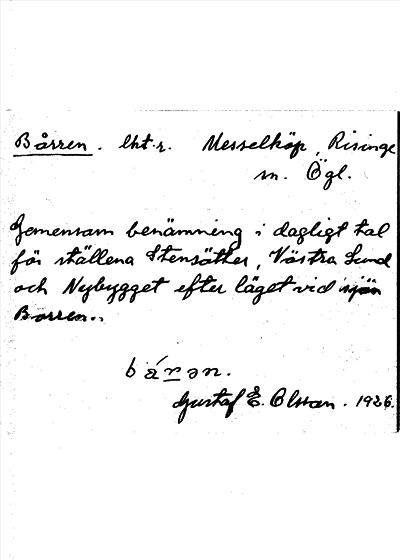 Bårren. lht. r. Messelköp, Risinge
sn. Ögl.
Gemensam benämning i dagligt tal
för ställena Stensätter, Västra Lund
och Nybygget efter läget vid sjön
Borren.
Gustaf E. Olsson. 1926.